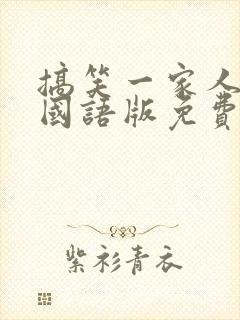 搞笑一家人
國語版免費
紫衫青衣